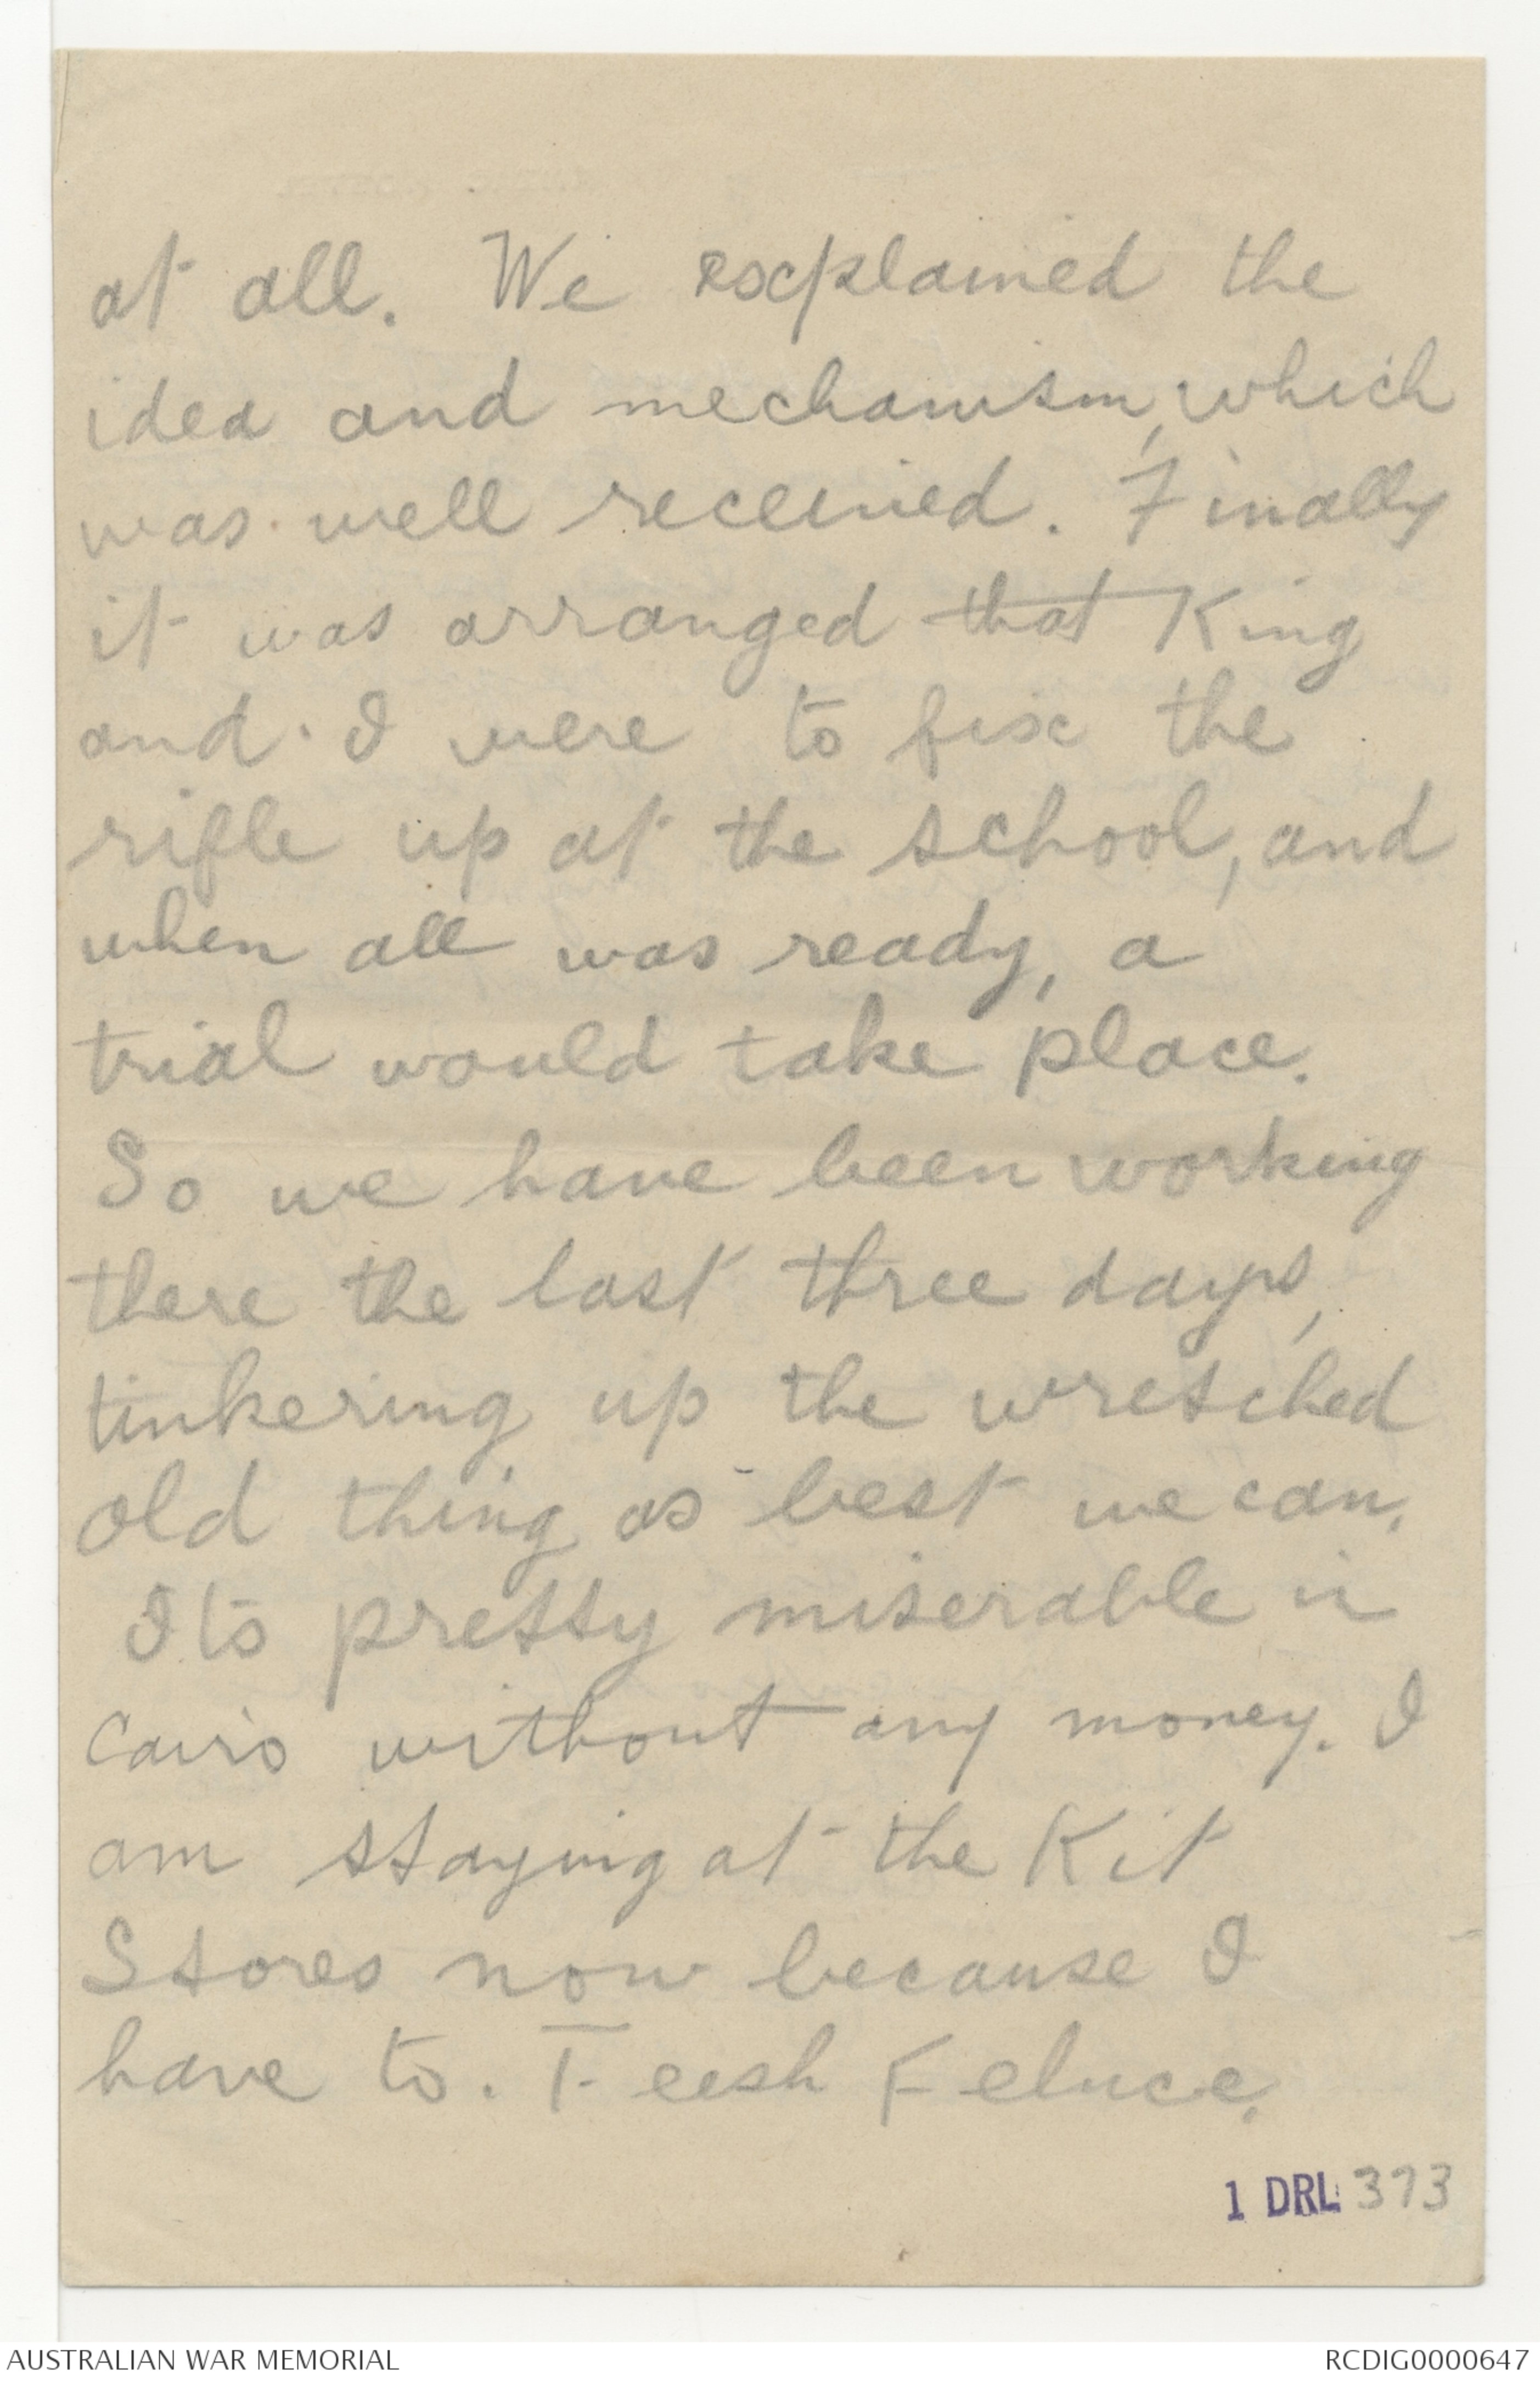 at all. We explained the
idea and mechanism, which
was well received. Finally
it was arranged that King
and I were to fix the
rifle up at the school, and
when all was ready, a
trial would take place.
So we have been working
there the last three days,
tinkering up the wretched
old thing as best we can.
Its pretty miserable in
Cairo without any money. I
am staying at the Kit
Stores now because I
have to. Feesh Feluce.
1 DRL 373
AUSTRALIAN WAR MEMORIAL
RCDIG0000647